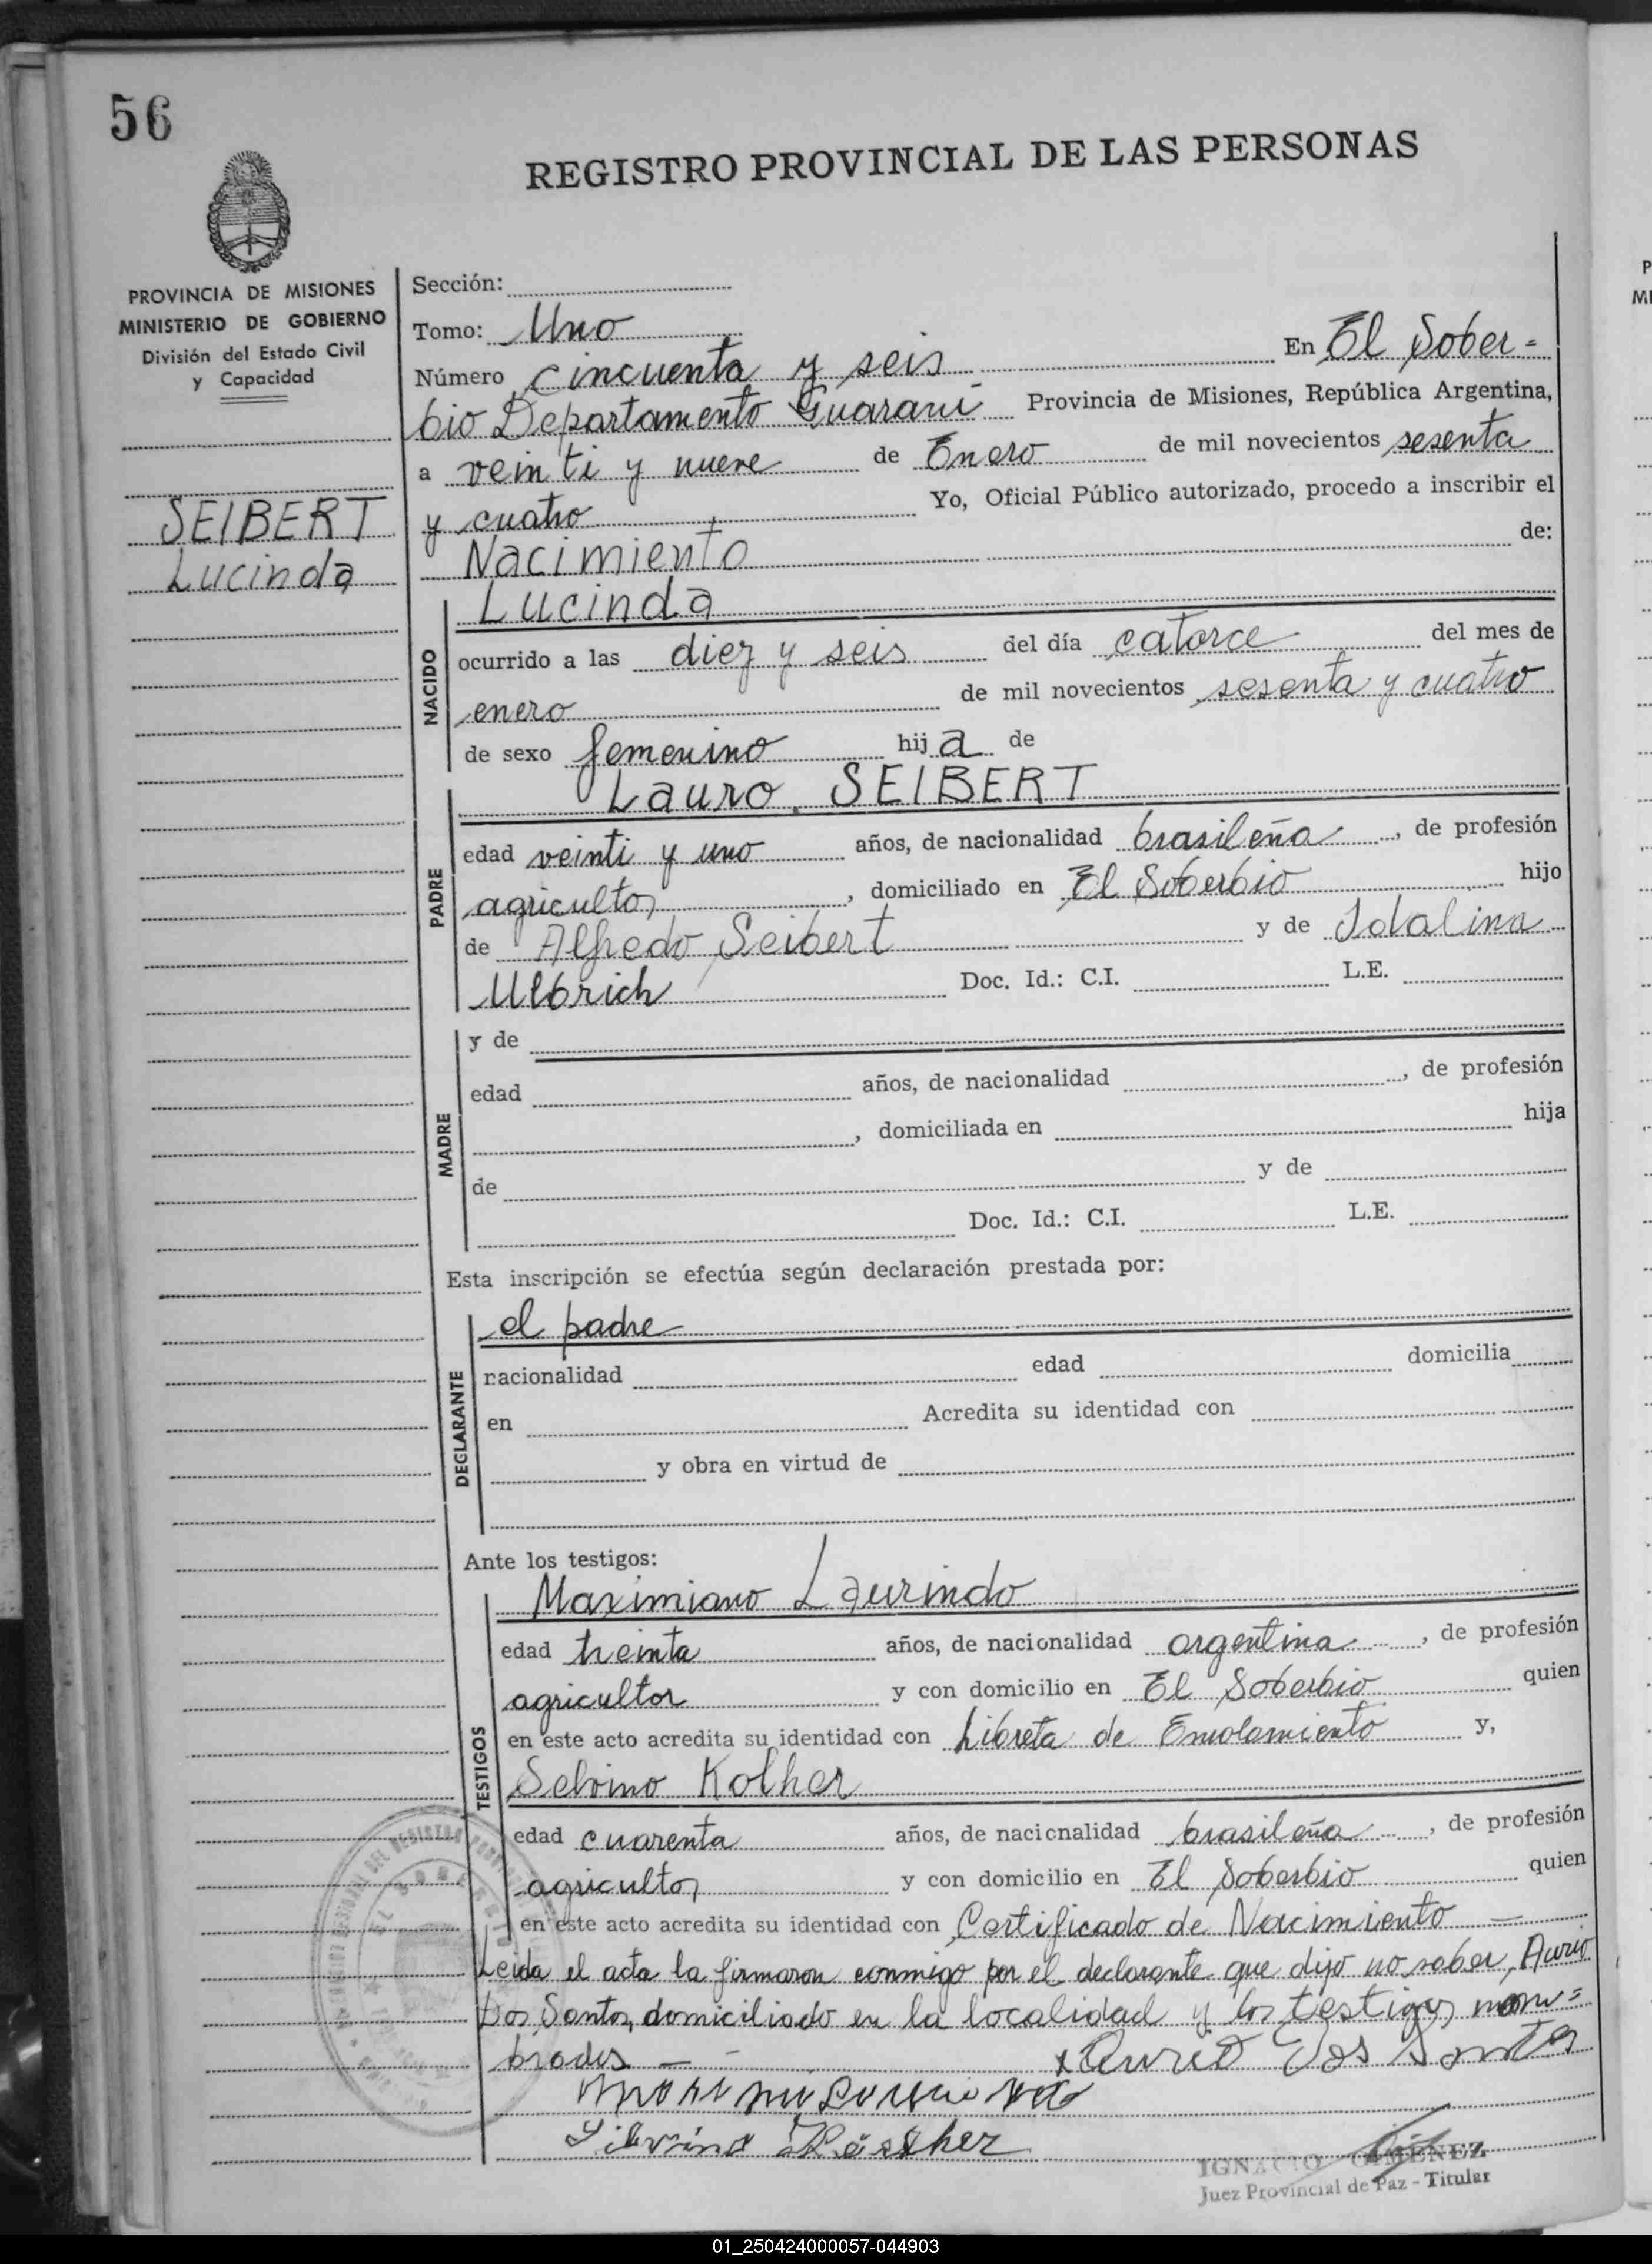 56
REGISTRO PROVINCIAL DE LAS PERSONAS
PROVINCIA DE MISIONES
MINISTERIO DE GOBIERNO
División del Estado Civil
y Capacidad
SEIBERT
Lucinda
Sección:
Tomo: Uno
Número cincuenta y seis En El Sober=
bio Departamento Guaraní Provincia de Misiones, República Argentina,
a veinti y nueve de Enero de mil novecientos sesenta
y cuatro Yo, Oficial Público autorizado, procedo a inscribir el
Nacimiento de:
NACIDO
Lucinda
ocurrido a las diez y seis del día catorce del mes de
enero de mil novecientos sesenta y cuatro
de sexo femenino hija de
PADRE
Lauro SEIBERT
edad veinti y uno años, de nacionalidad brasileña, de profesión
agricultor, domiciliado en El Soberbio hijo
de Alfredo Seibert y de Idalina
Ulbrich Doc. Id.: C.I. L.E.
MADRE
y de
edad años, de nacionalidad , de profesión
, domiciliada en hija
de y de
Doc. Id.: C.I. L.E.
Esta inscripción se efectúa según declaración prestada por:
DECLARANTE
el padre
nacionalidad edad domicilia
en Acredita su identidad con
y obra en virtud de
Ante los testigos:
TESTIGOS
Maximiano Laurindo
edad treinta años, de nacionalidad argentina, de profesión
agricultor y con domicilio en El Soberbio quien
en este acto acredita su identidad con Libreta de Enrolamiento y,
Selvino Kolher
edad cuarenta años, de nacionalidad brasileña, de profesión
agricultor y con domicilio en El Soberbio quien
en este acto acredita su identidad con Certificado de Nacimiento —
Leida el acta la firmaron conmigo por el declarante que dijo no saber, Aurio
Dos Santos, domiciliado en la localidad y los testigos nom=
brados — - x Aurio Dos Santos
IGNACIO GIMENEZ
Juez Provincial de Paz - Titular
01_250424000057-044903